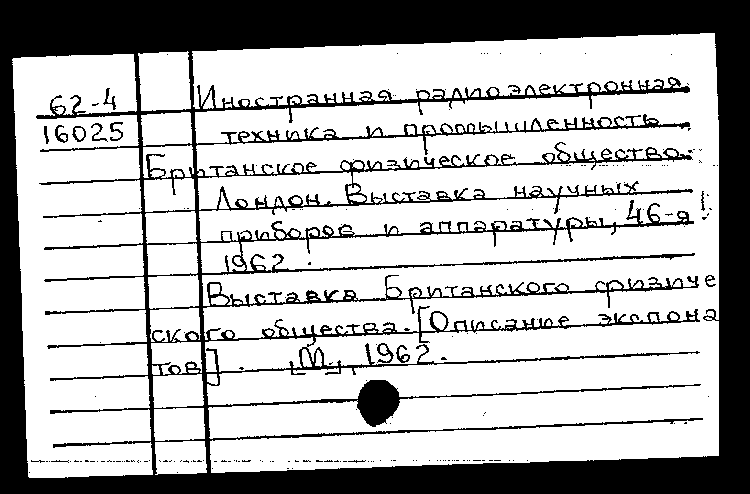 62-4 Иностранная радиоэлектронная
16025 техника и промышленность
Британское физическое общество.
Лондон. Выставка научных
приборов и аппаратуры, 46-я!
1962
Выставка Британского физиче
ского общества. [Описание экспона
тов]. [М], 1962.